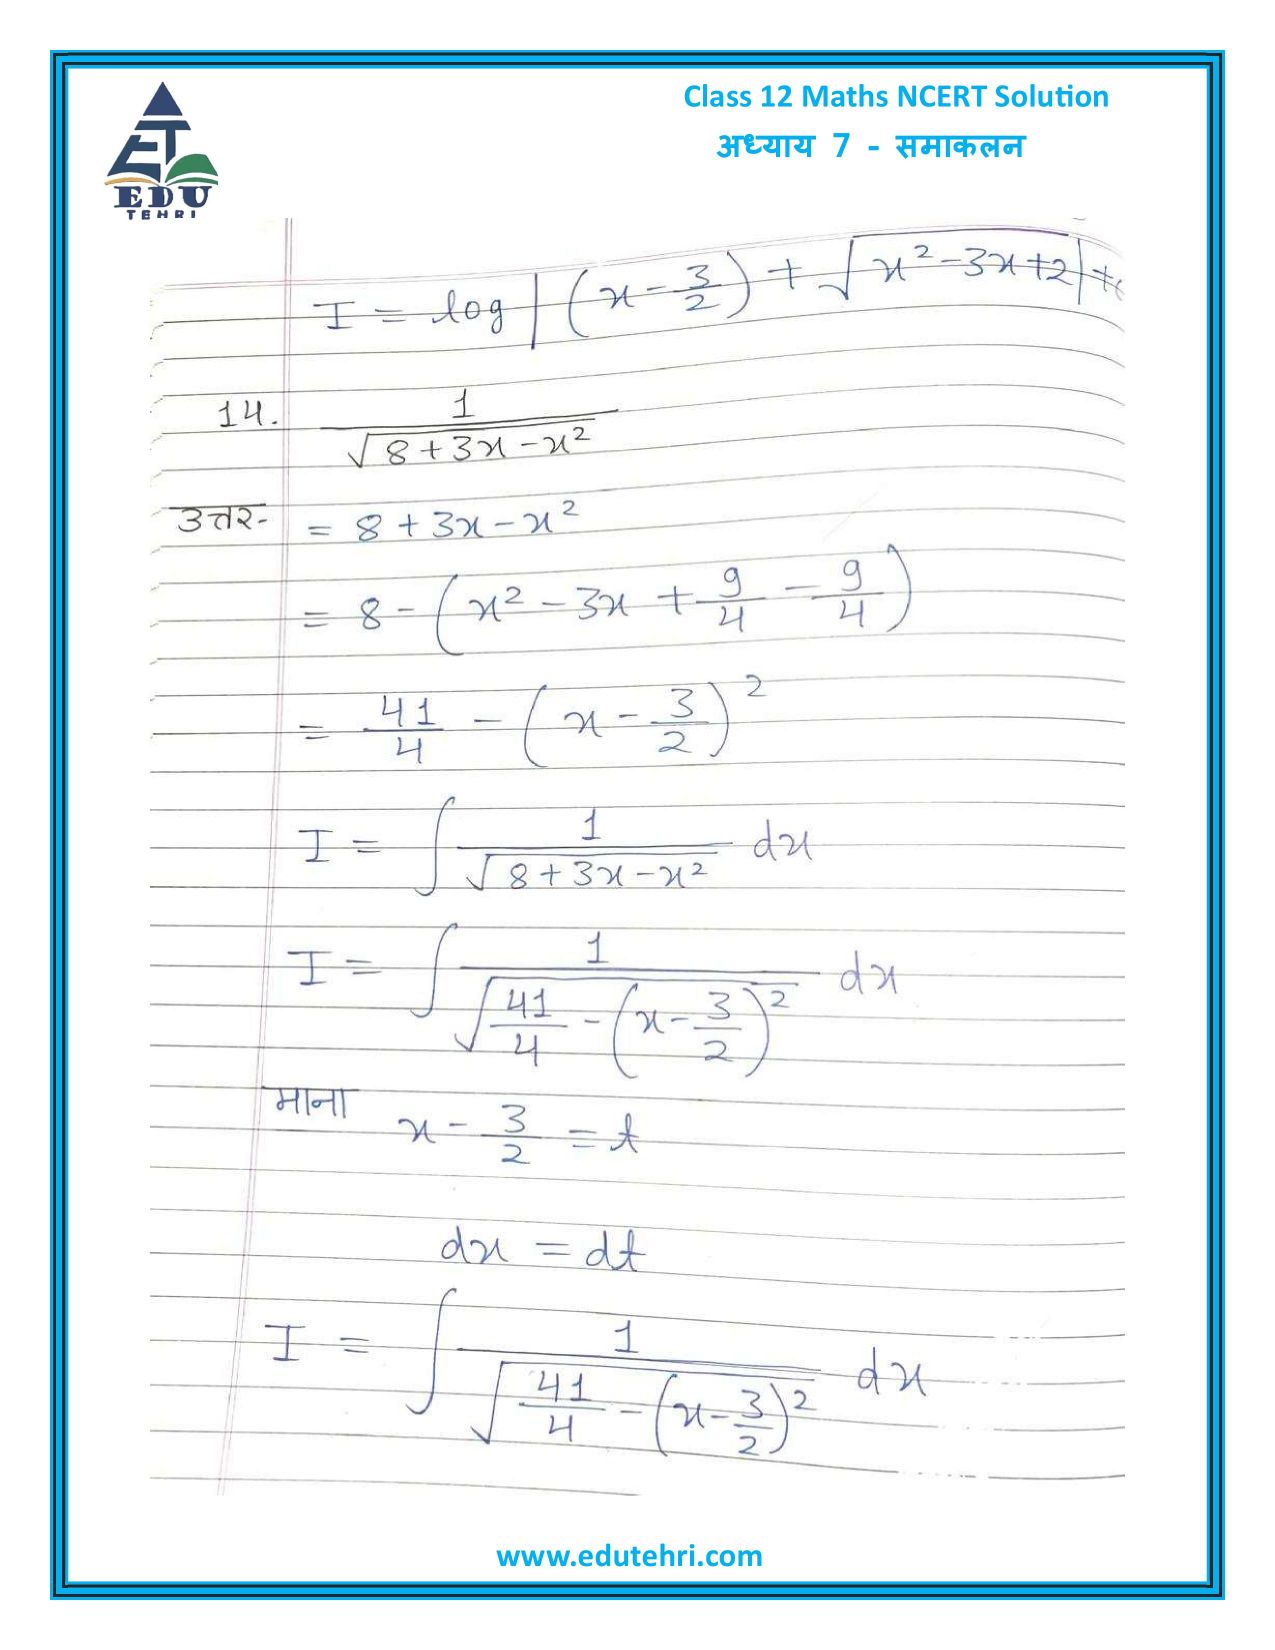 Class 12 Maths NCERT Solution
अध्याय 7 - समाकलन
EDU
TEHRI
I = log|(x - 3/2) + √(x² - 3x + 2)| + c
14. 1/√(8 + 3x - x²)
उत्तर- = 8 + 3x - x²
= 8 - (x² - 3x + 9/4 - 9/4)
= 41/4 - (x - 3/2)²
I = ∫ 1/√(8 + 3x - x²) dx
I = ∫ 1/√(41/4 - (x - 3/2)²) dx
माना x - 3/2 = t
dx = dt
I = ∫ 1/√(41/4 - (x - 3/2)²) dx
www.edutehri.com